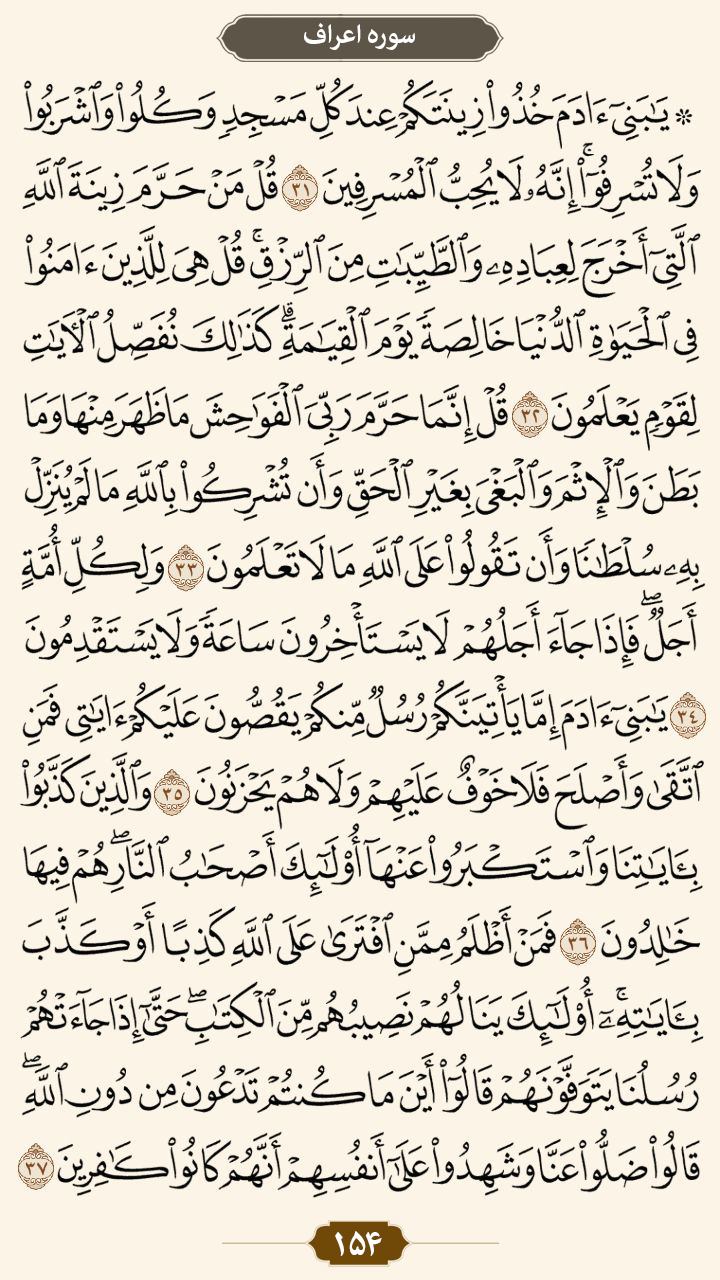 سوره اعراف
۞ يَٰبَنِيٓ ءَادَمَ خُذُواْ زِينَتَكُمۡ عِندَ كُلِّ مَسۡجِدٖ وَكُلُواْ وَٱشۡرَبُواْ
وَلَا تُسۡرِفُوٓاْۚ إِنَّهُۥ لَا يُحِبُّ ٱلۡمُسۡرِفِينَ ٣١ قُلۡ مَنۡ حَرَّمَ زِينَةَ ٱللَّهِ
ٱلَّتِيٓ أَخۡرَجَ لِعِبَادِهِۦ وَٱلطَّيِّبَٰتِ مِنَ ٱلرِّزۡقِۚ قُلۡ هِيَ لِلَّذِينَ ءَامَنُواْ
فِي ٱلۡحَيَوٰةِ ٱلدُّنۡيَا خَالِصَةٗ يَوۡمَ ٱلۡقِيَٰمَةِۗ كَذَٰلِكَ نُفَصِّلُ ٱلۡأٓيَٰتِ
لِقَوۡمٖ يَعۡلَمُونَ ٣٢ قُلۡ إِنَّمَا حَرَّمَ رَبِّيَ ٱلۡفَوَٰحِشَ مَا ظَهَرَ مِنۡهَا وَمَا
بَطَنَ وَٱلۡإِثۡمَ وَٱلۡبَغۡيَ بِغَيۡرِ ٱلۡحَقِّ وَأَن تُشۡرِكُواْ بِٱللَّهِ مَا لَمۡ يُنَزِّلۡ
بِهِۦ سُلۡطَٰنٗا وَأَن تَقُولُواْ عَلَى ٱللَّهِ مَا لَا تَعۡلَمُونَ ٣٣ وَلِكُلِّ أُمَّةٍ
أَجَلٞۖ فَإِذَا جَآءَ أَجَلُهُمۡ لَا يَسۡتَأۡخِرُونَ سَاعَةٗ وَلَا يَسۡتَقۡدِمُونَ
٣٤ يَٰبَنِيٓ ءَادَمَ إِمَّا يَأۡتِيَنَّكُمۡ رُسُلٞ مِّنكُمۡ يَقُصُّونَ عَلَيۡكُمۡ ءَايَٰتِي فَمَنِ
ٱتَّقَىٰ وَأَصۡلَحَ فَلَا خَوۡفٌ عَلَيۡهِمۡ وَلَا هُمۡ يَحۡزَنُونَ ٣٥ وَٱلَّذِينَ كَذَّبُواْ
بِـَٔايَٰتِنَا وَٱسۡتَكۡبَرُواْ عَنۡهَآ أُوْلَٰٓئِكَ أَصۡحَٰبُ ٱلنَّارِۖ هُمۡ فِيهَا
خَٰلِدُونَ ٣٦ فَمَنۡ أَظۡلَمُ مِمَّنِ ٱفۡتَرَىٰ عَلَى ٱللَّهِ كَذِبًا أَوۡ كَذَّبَ
بِـَٔايَٰتِهِۦٓۚ أُوْلَٰٓئِكَ يَنَالُهُمۡ نَصِيبُهُم مِّنَ ٱلۡكِتَٰبِۖ حَتَّىٰٓ إِذَا جَآءَتۡهُمۡ
رُسُلُنَا يَتَوَفَّوۡنَهُمۡ قَالُوٓاْ أَيۡنَ مَا كُنتُمۡ تَدۡعُونَ مِن دُونِ ٱللَّهِۖ
قَالُواْ ضَلُّواْ عَنَّا وَشَهِدُواْ عَلَىٰٓ أَنفُسِهِمۡ أَنَّهُمۡ كَانُواْ كَٰفِرِينَ ٣٧
۱۵۴